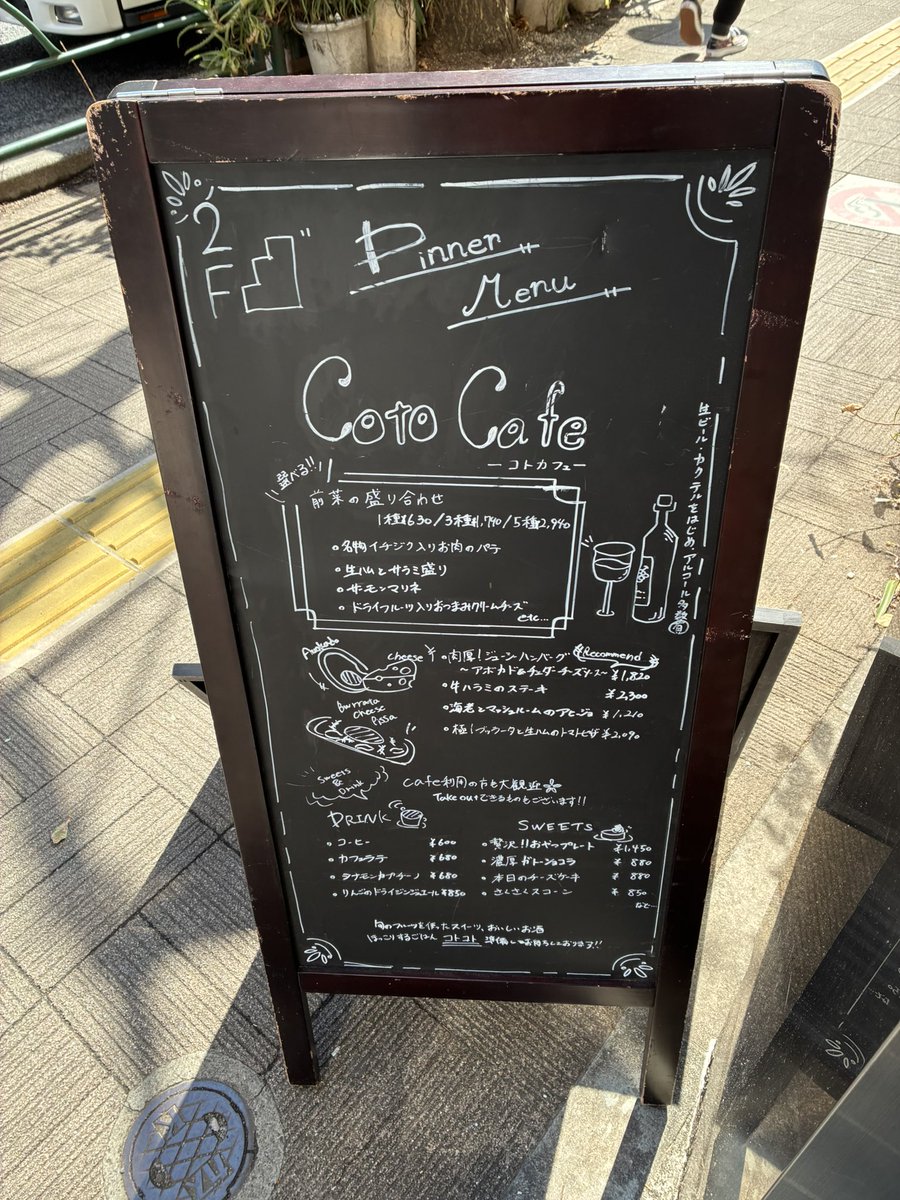 2F
Dinner
Menu
Coto Cafe
ーコトカフェー
生ビール・カクテルをはじめ、アルコール多数有
選べる!!
前菜の盛り合わせ
1種¥630/3種¥1,740/5種2,940
名物イチジク入りお肉のパテ
生ハムとサラミ盛り
サーモンマリネ
ドライフルーツ入りおつまみクリームチーズ
etc...
Avokado
cheese
Burrata
cheese
Pissa
肉厚!ジューシーハンバーグ Recommend
〜アボカド&チェダーチーズソース〜 ¥1,820
牛ハラミのステーキ ¥2,300
海老とマッシュルームのアヒージョ ¥1,210
極!ブッラータと生ハムのトマトピザ ¥2,090
Sweets
&
Drink
Cafe利用の方も大観迎
Take outできるものもございます!!
DRINK
・コーヒー ¥600
・カフェラテ ¥680
・シナモンカプチーノ ¥680
・りんごのドライジンジャエール ¥850
SWEETS
・贅沢!!おやつプレート ¥1,450
・濃厚ガトーショコラ ¥880
・本日のチーズケーキ ¥880
・さくさくスコーン ¥850
など…
旬のフルーツを使ったスイーツ、おいしいお酒
ほっこりするごはん コトコト 準備してお待ちしております!!